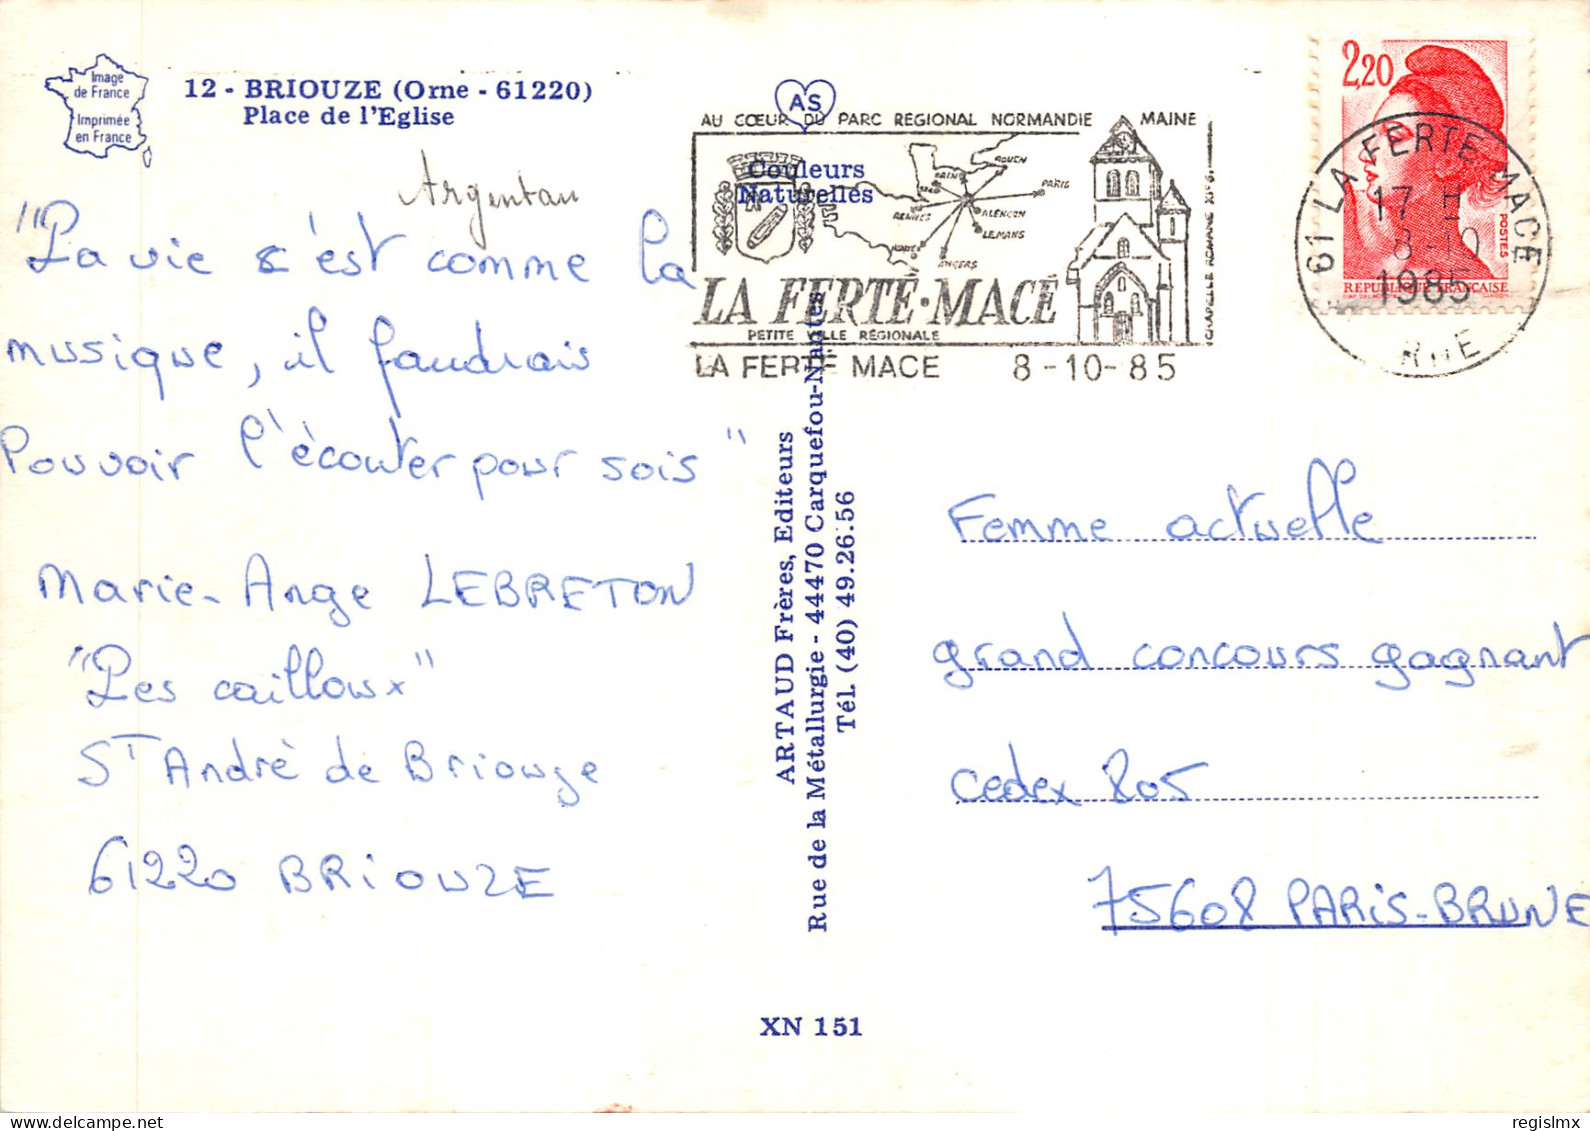 Image
de France
Imprimée
en France
12 - BRIOUZE (Orne - 61220)
Place de l'Eglise
Argentan
"La vie s'est comme la
musique, il faudrais
Pouvoir l'écouter pour sois"
Marie-Ange LEBRETON
"Les cailloux"
ST André de Briouze
61220 BRIOUZE
AS
Couleurs
Naturelles
AU CŒUR DU PARC RÉGIONAL NORMANDIE MAINE
ROUEN
PARIS
RENNES
ALENÇON
LE MANS
ANGERS
LA FERTÉ-MACÉ
PETITE VILLE RÉGIONALE
LA FERTE MACE 8-10-85
2,20
POSTES
REPUBLIQUE FRANÇAISE
61 LA FERTE MACE
17 H
8-10
1985
ORNE
ARTAUD Frères, Editeurs
Rue de la Métallurgie - 44470 Carquefou-Nantes
Tél. (40) 49.26.56
Femme actuelle
grand concours gagnant
cedex 805
75608 PARIS-BRUNE
XN 151
delcampe.net
regislmx